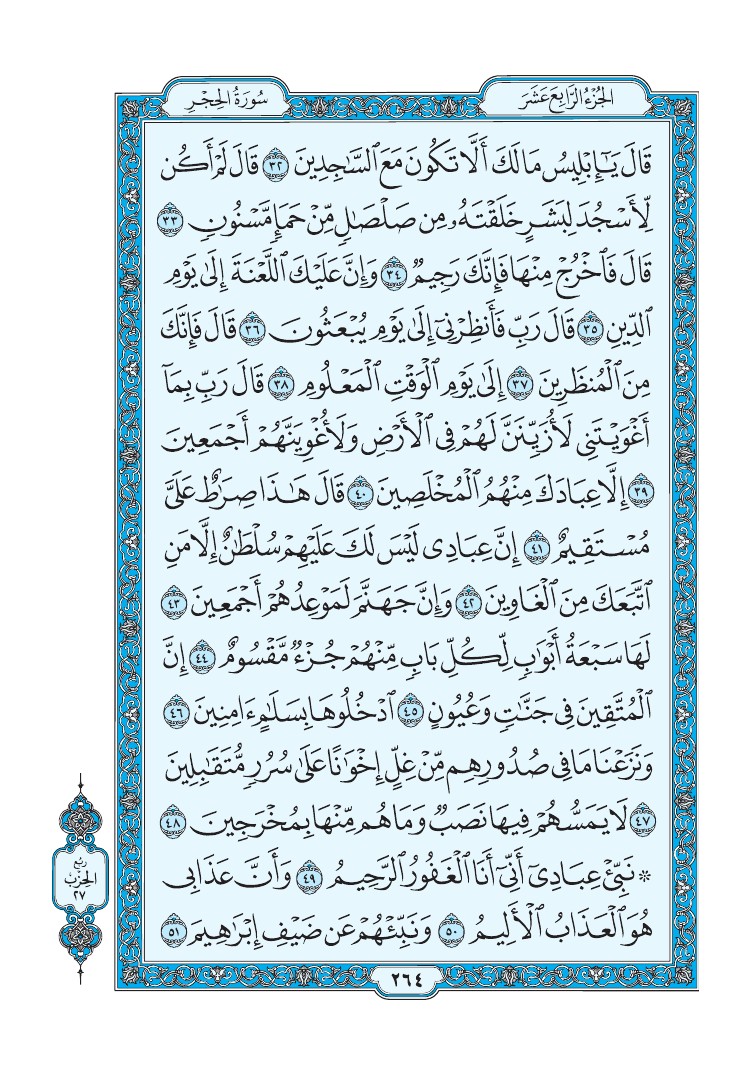 الجزء الرابع عشر
سورة الحجر
قَالَ يَـٰٓإِبۡلِيسُ مَا لَكَ أَلَّا تَكُونَ مَعَ ٱلسَّـٰجِدِينَ ٣٢ قَالَ لَمۡ أَكُن
لِّأَسۡجُدَ لِبَشَرٍ خَلَقۡتَهُۥ مِن صَلۡصَـٰلٖ مِّنۡ حَمَإٖ مَّسۡنُونٖ ٣٣
قَالَ فَٱخۡرُجۡ مِنۡهَا فَإِنَّكَ رَجِيمٞ ٣٤ وَإِنَّ عَلَيۡكَ ٱللَّعۡنَةَ إِلَىٰ يَوۡمِ
ٱلدِّينِ ٣٥ قَالَ رَبِّ فَأَنظِرۡنِيٓ إِلَىٰ يَوۡمِ يُبۡعَثُونَ ٣٦ قَالَ فَإِنَّكَ
مِنَ ٱلۡمُنظَرِينَ ٣٧ إِلَىٰ يَوۡمِ ٱلۡوَقۡتِ ٱلۡمَعۡلُومِ ٣٨ قَالَ رَبِّ بِمَآ
أَغۡوَيۡتَنِي لَأُزَيِّنَنَّ لَهُمۡ فِي ٱلۡأَرۡضِ وَلَأُغۡوِيَنَّهُمۡ أَجۡمَعِينَ
٣٩ إِلَّا عِبَادَكَ مِنۡهُمُ ٱلۡمُخۡلَصِينَ ٤٠ قَالَ هَـٰذَا صِرَٰطٌ عَلَيَّ
مُسۡتَقِيمٌ ٤١ إِنَّ عِبَادِي لَيۡسَ لَكَ عَلَيۡهِمۡ سُلۡطَـٰنٌ إِلَّا مَنِ
ٱتَّبَعَكَ مِنَ ٱلۡغَاوِينَ ٤٢ وَإِنَّ جَهَنَّمَ لَمَوۡعِدُهُمۡ أَجۡمَعِينَ ٤٣
لَهَا سَبۡعَةُ أَبۡوَٰبٖ لِّكُلِّ بَابٖ مِّنۡهُمۡ جُزۡءٞ مَّقۡسُومٌ ٤٤ إِنَّ
ٱلۡمُتَّقِينَ فِي جَنَّـٰتٖ وَعُيُونٍ ٤٥ ٱدۡخُلُوهَا بِسَلَـٰمٍ ءَامِنِينَ ٤٦
وَنَزَعۡنَا مَا فِي صُدُورِهِم مِّنۡ غِلٍّ إِخۡوَٰنًا عَلَىٰ سُرُرٖ مُّتَقَـٰبِلِينَ
٤٧ لَا يَمَسُّهُمۡ فِيهَا نَصَبٞ وَمَا هُم مِّنۡهَا بِمُخۡرَجِينَ ٤٨
۞ نَبِّئۡ عِبَادِيٓ أَنِّيٓ أَنَا ٱلۡغَفُورُ ٱلرَّحِيمُ ٤٩ وَأَنَّ عَذَابِي
هُوَ ٱلۡعَذَابُ ٱلۡأَلِيمُ ٥٠ وَنَبِّئۡهُمۡ عَن ضَيۡفِ إِبۡرَٰهِيمَ ٥١
ربع
الحزب
٢٧
٢٦٤